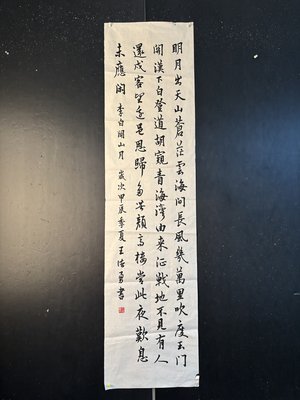 明月出天山蒼茫雲海間長風幾萬里吹度玉門
關漢下白登道胡窺青海灣由來征戰地不見有人
還戍客望邊邑思歸多苦顏高樓當此夜歎息
未應閑 李白關山月 歲次甲辰季夏王書